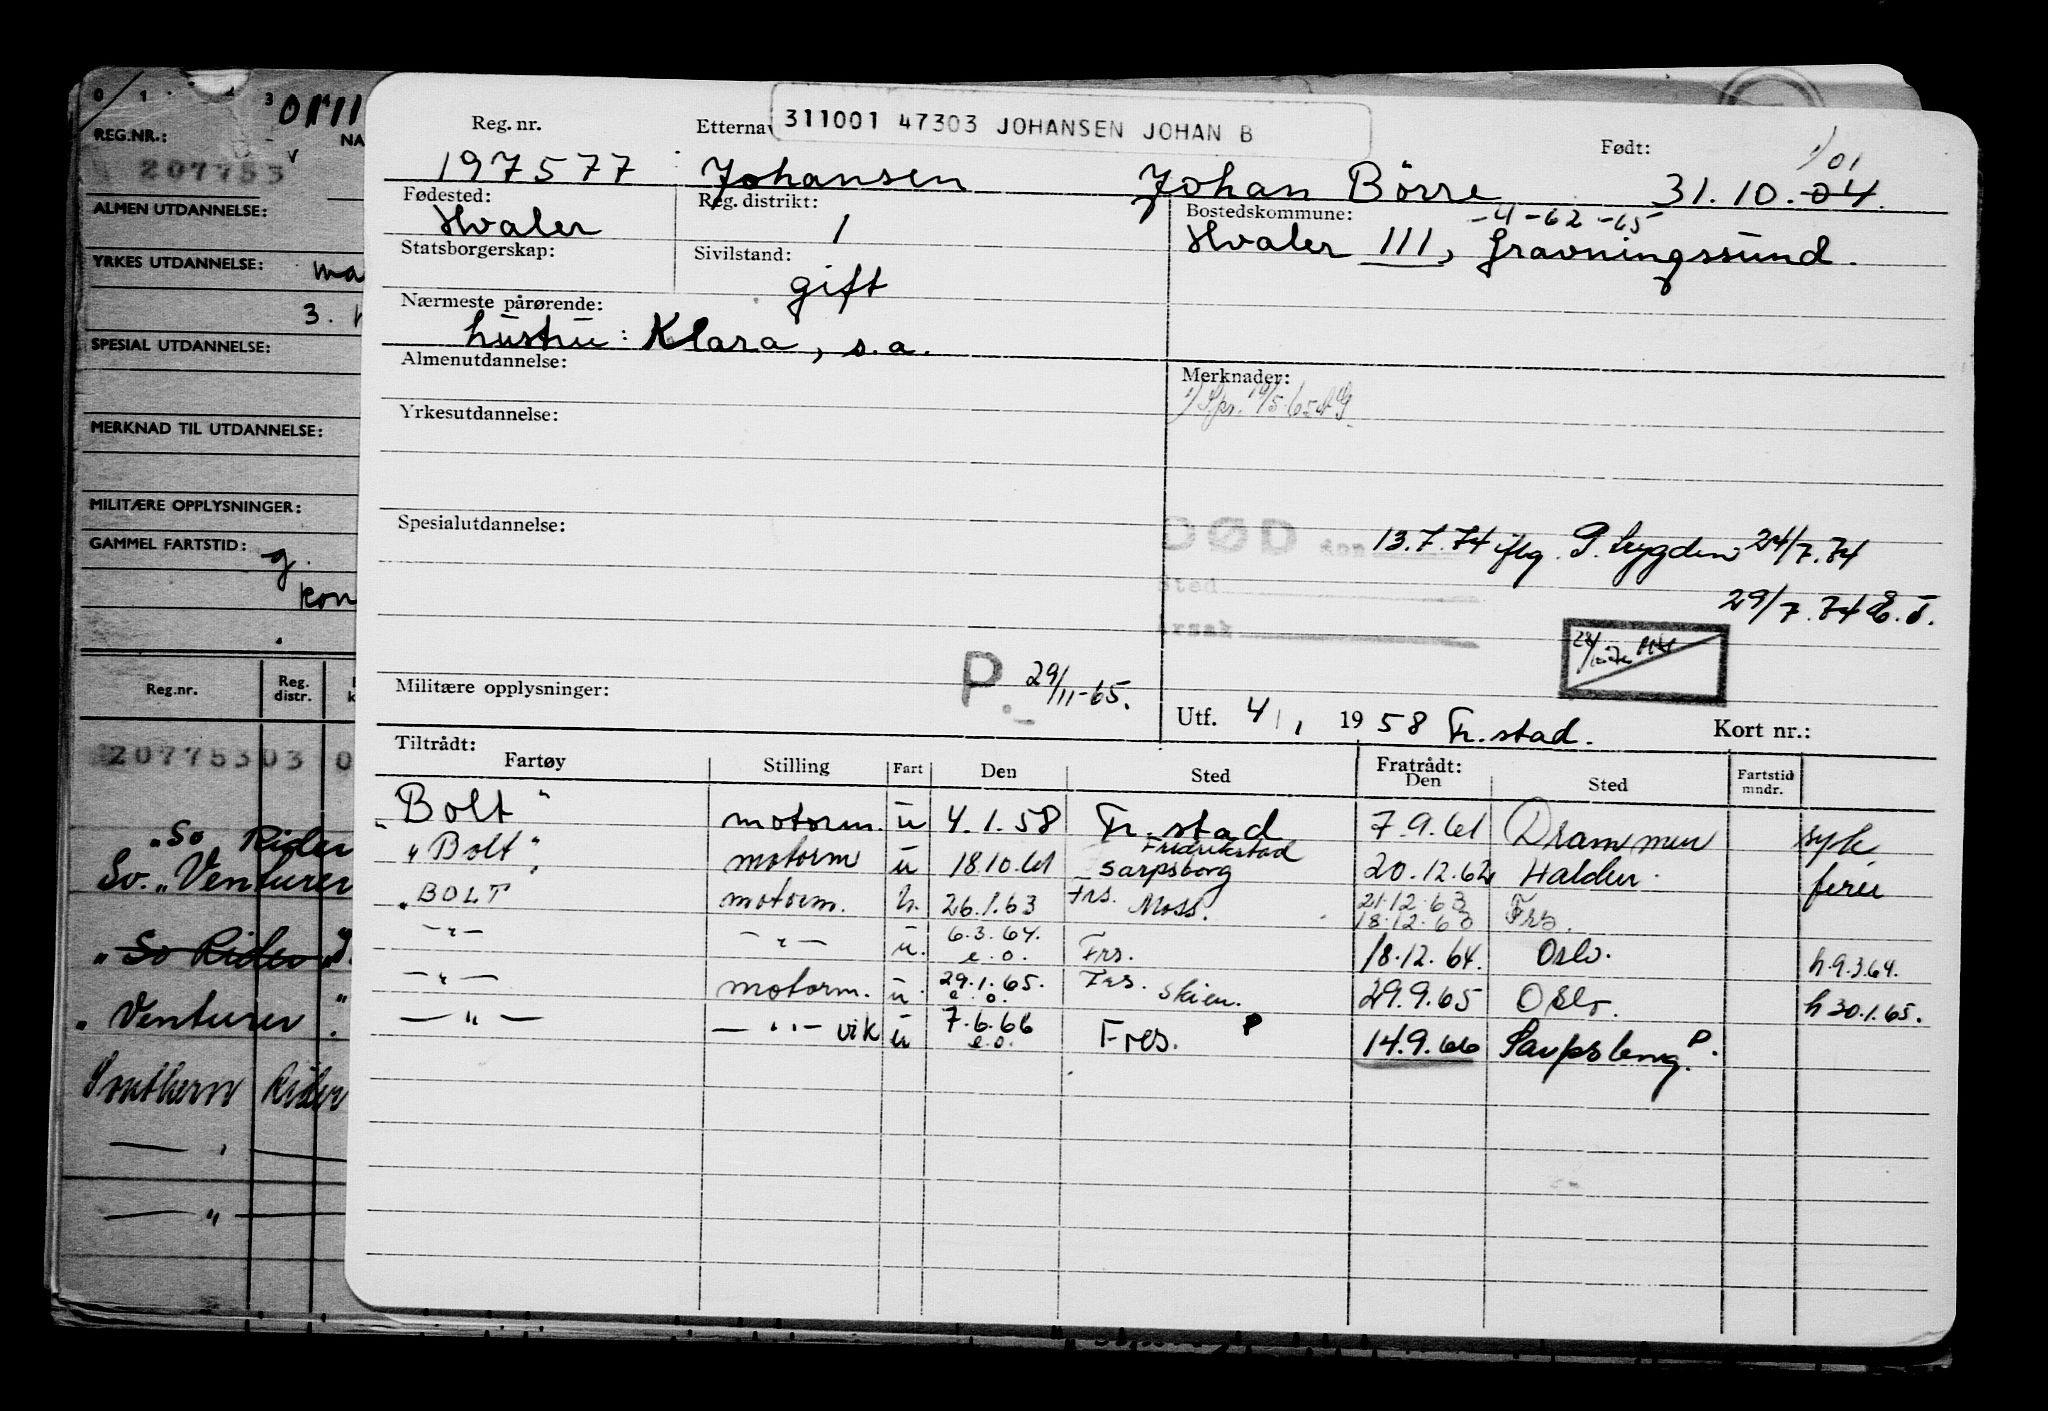 311001 47303 JOHANSEN JOHAN B
Reg. nr. Etternav Født: 1) 01
197577 Johansen Johan Börre 31.10.04.
Fødested: Reg. distrikt: Bostedskommune: -4-62-65
Hvaler 1 Hvaler III, Gravningssund.
Statsborgerskap: Sivilstand:
gift
Nærmeste pårørende:
hustru: Klara, s.a.
Almenutdannelse: Merknader:
Yrkesutdannelse:
Spesialutdannelse:
DØD den 13.7.74 iflg. P. trygden 24/7.74
Sted
Årsak
29/7.74
P. 29/11-65.
Militære opplysninger:
Utf. 4/1 1958 Fr.stad. Kort nr.:
Tiltrådt: Fratrådt:
Fartøy Stilling Fart Den Sted Den Sted Fartstid mndr.
"Bolt" motorm. u 4.1.58 Fr.stad 7.9.61 Drammen syk
"Bolt" motorm u 18.10.61 Fredrikstad Sarpsborg 20.12.62 Halden. ferie
"BOLT motorm. h. 26.1.63 Frs. Moss. 21.12.63 18.12.63 Frs.
-"- -"- u. 6.3.64. e.o. Frs. 18.12.64. Oslo. h.9.3.64.
-"- motorm. u. 29.1.65. e.o. Frs. Skien. 29.9.65 Oslo. h 30.1.65.
-"- -"- vik u 7.6.66 e.o. Fres. P 14.9.66 Sarpsborg P.
REG.NR.: NA
207753
ALMEN UTDANNELSE:
YRKES UTDANNELSE: ma
3.
SPESIAL UTDANNELSE:
MERKNAD TIL UTDANNELSE:
MILITÆRE OPPLYSNINGER:
GAMMEL FARTSTID: g.
kon
Reg.nr. Reg. distr.
207753 03 0
"So Rider
So. "Venturer
"So Rider"
"Venturer"
Southern Rider
-"-
-"-